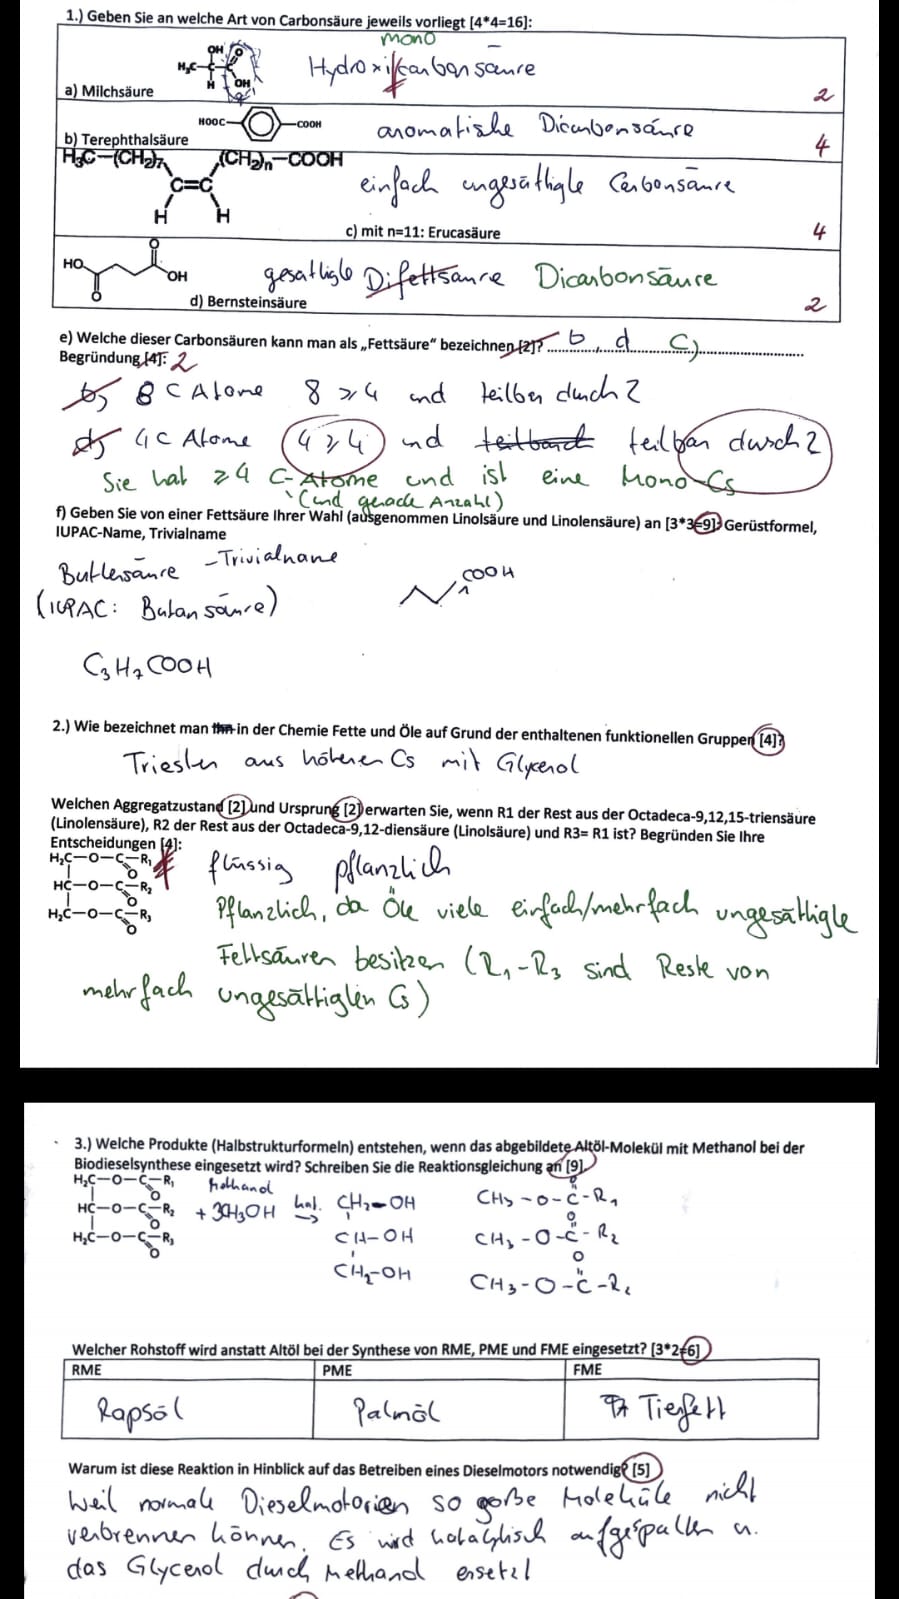 1.) Geben Sie an welche Art von Carbonsäure jeweils vorliegt [4*4=16]:
mono
OH O
H₃C—C—C
H OH
Hydroxicarbonsäure
a) Milchsäure
2
HOOC— —COOH
aromatische Dicarbonsäure
b) Terephthalsäure
4
H₃C—(CH₂)₇ (CH₂)n—COOH
C=C
H H
einfach ungesättigte Carbonsäure
c) mit n=11: Erucasäure
4
O
HO OH
O
gesättigte Difettsäure Dicarbonsäure
d) Bernsteinsäure
2
e) Welche dieser Carbonsäuren kann man als „Fettsäure“ bezeichnen [2]? b, d c)
Begründung [4]: 2
b) 8 C Atome 8 ≥ 4 und teilbar durch 2
d) 4 C Atome 4 ≥ 4 und teilbar durch 2
Sie hat ≥ 4 C-Atome und ist eine Mono-Cs
(und gerade Anzahl)
f) Geben Sie von einer Fettsäure Ihrer Wahl (ausgenommen Linolsäure und Linolensäure) an [3*3=9]: Gerüstformel,
IUPAC-Name, Trivialname
Buttersäure - Trivialname
COOH
(IUPAC: Butansäure)
C₃H₇COOH
2.) Wie bezeichnet man in der Chemie Fette und Öle auf Grund der enthaltenen funktionellen Gruppen [4]?
Triester aus höheren Cs mit Glycerol
Welchen Aggregatzustand [2] und Ursprung [2] erwarten Sie, wenn R1 der Rest aus der Octadeca-9,12,15-triensäure
(Linolensäure), R2 der Rest aus der Octadeca-9,12-diensäure (Linolsäure) und R3= R1 ist? Begründen Sie Ihre
Entscheidungen [4]:
H₂C—O—C—R₁
O
HC—O—C—R₂
O
H₂C—O—C—R₃
O
flüssig pflanzlich
Pflanzlich, da Öle viele einfach/mehrfach ungesättigte
Fettsäuren besitzen (R₁-R₃ sind Reste von
mehrfach ungesättigten Cs)
3.) Welche Produkte (Halbstrukturformeln) entstehen, wenn das abgebildete Altöl-Molekül mit Methanol bei der
Biodieselsynthese eingesetzt wird? Schreiben Sie die Reaktionsgleichung an [9].
H₂C—O—C—R₁
O
HC—O—C—R₂
O
H₂C—O—C—R₃
O
Methanol
+ 3CH₃OH
kat.
→
CH₂-OH
CH-OH
CH₂-OH
O
CH₃-O-C-R₁
O
CH₃-O-C-R₂
O
CH₃-O-C-R₂
Welcher Rohstoff wird anstatt Altöl bei der Synthese von RME, PME und FME eingesetzt? [3*2=6]
RME PME FME
Rapsöl Palmöl Tierfett
Warum ist diese Reaktion in Hinblick auf das Betreiben eines Dieselmotors notwendig? [5]
Weil normale Dieselmotorien so große Moleküle nicht
verbrennen können. Es wird katalytisch aufgespalten u.
das Glycerol durch Methanol ersetzt